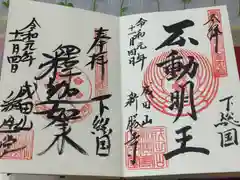 奉拝
下総国
不動明王
成田山
新勝寺
令和元年
十一月四日
奉拝
下総国
釋迦如来
成田山
令和元年
十一月四日